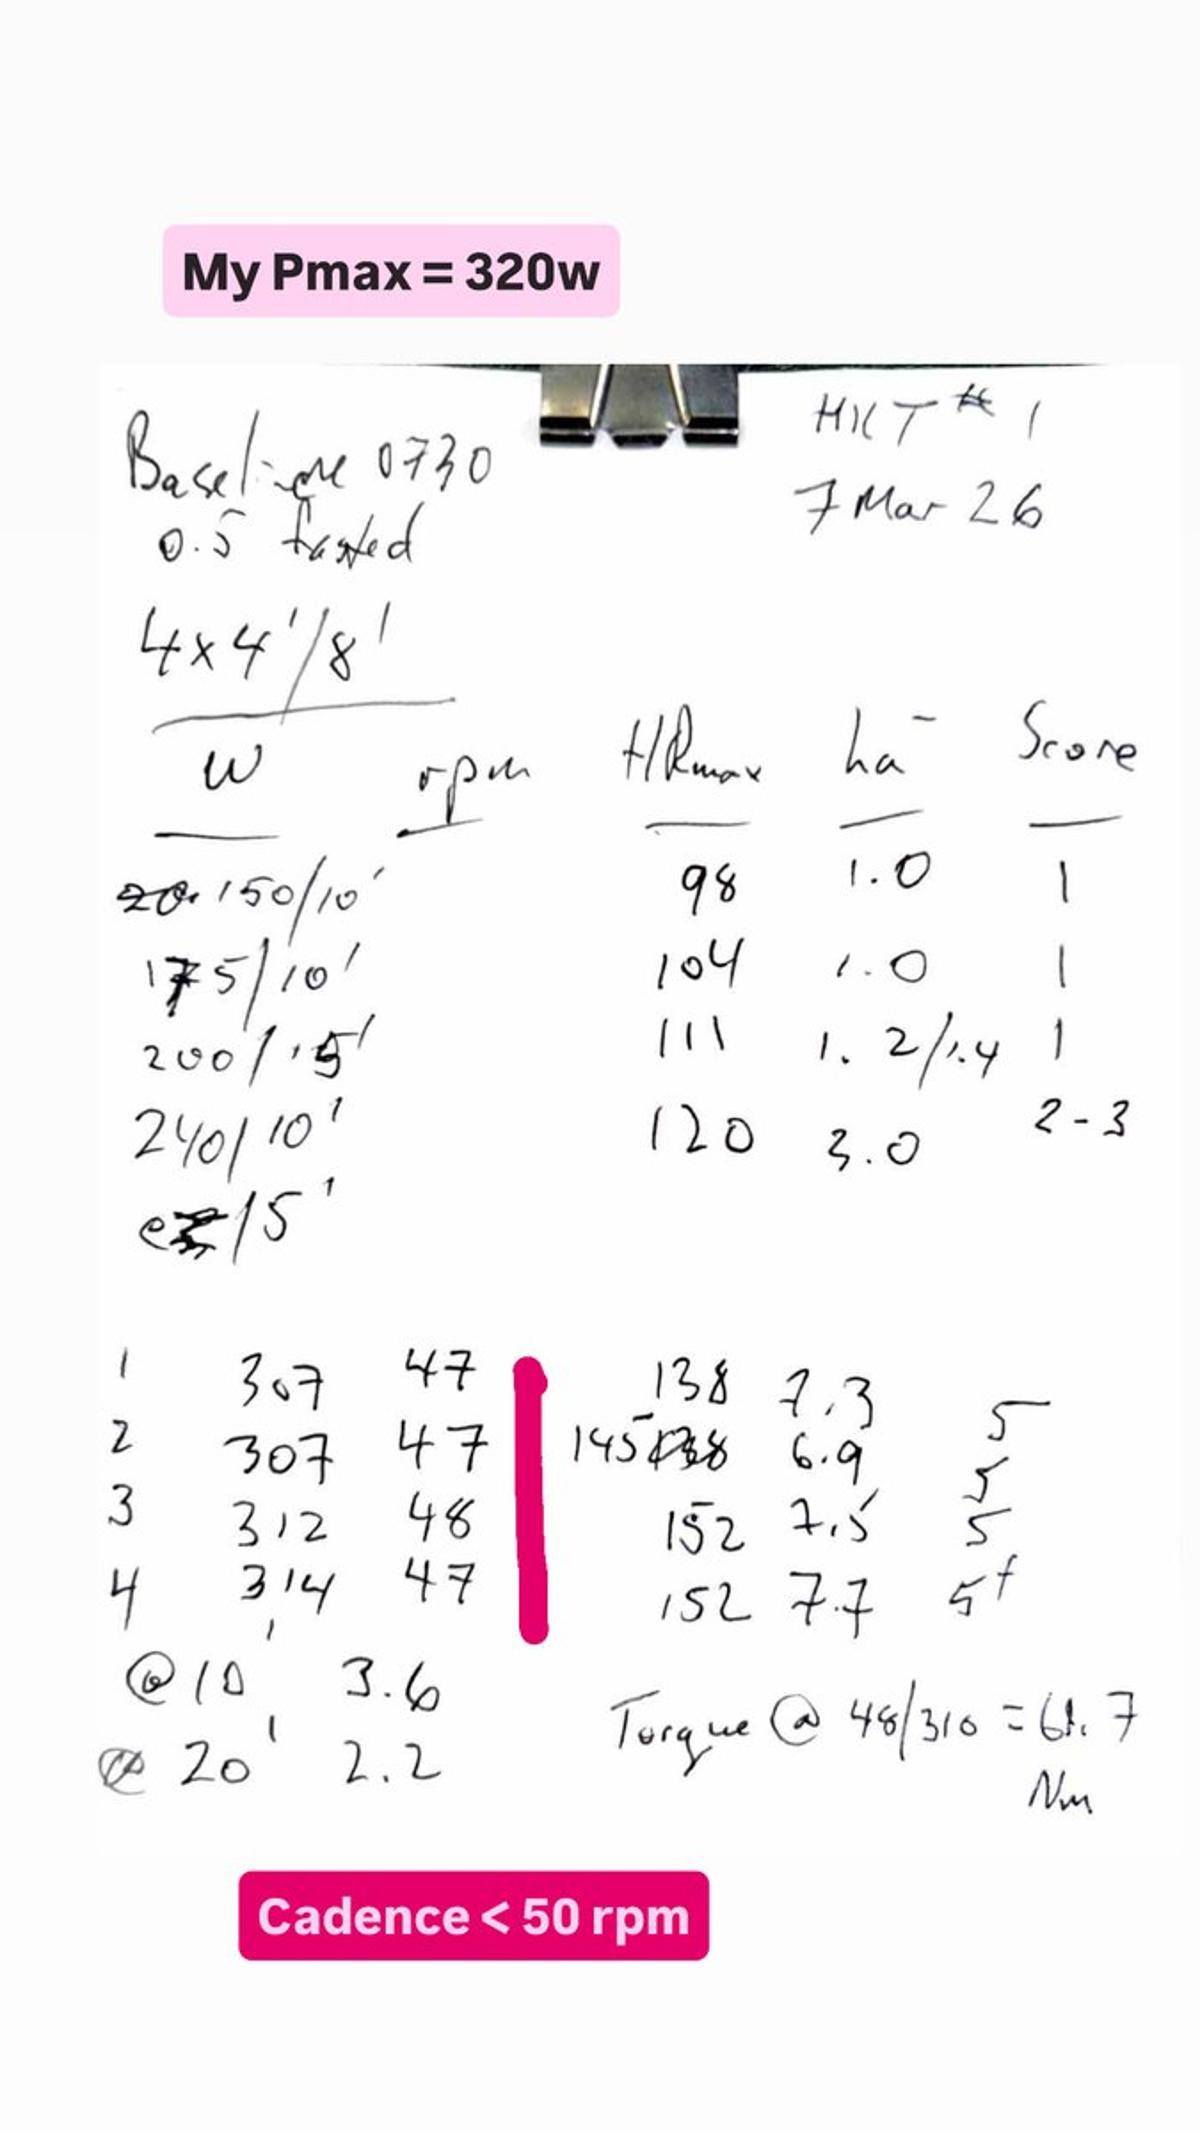 My Pmax = 320w
HIIT # 1
7 Mar 26
Baseline 0730
0.5 fasted
4x4'/8'
W rpm HRmax La⁻ Score
150/10' 98 1.0 1
175/10' 104 1.0 1
200/15' 111 1.2/1.4 1
240/10' 120 3.0 2-3
/5'
1 307 47 138 7.3 5
2 307 47 145 6.9 5
3 312 48 152 7.5 5
4 314 47 152 7.7 5+
@ 10' 3.6
@ 20' 2.2
Torque @ 48/310 = 61.7
Nm
Cadence < 50 rpm